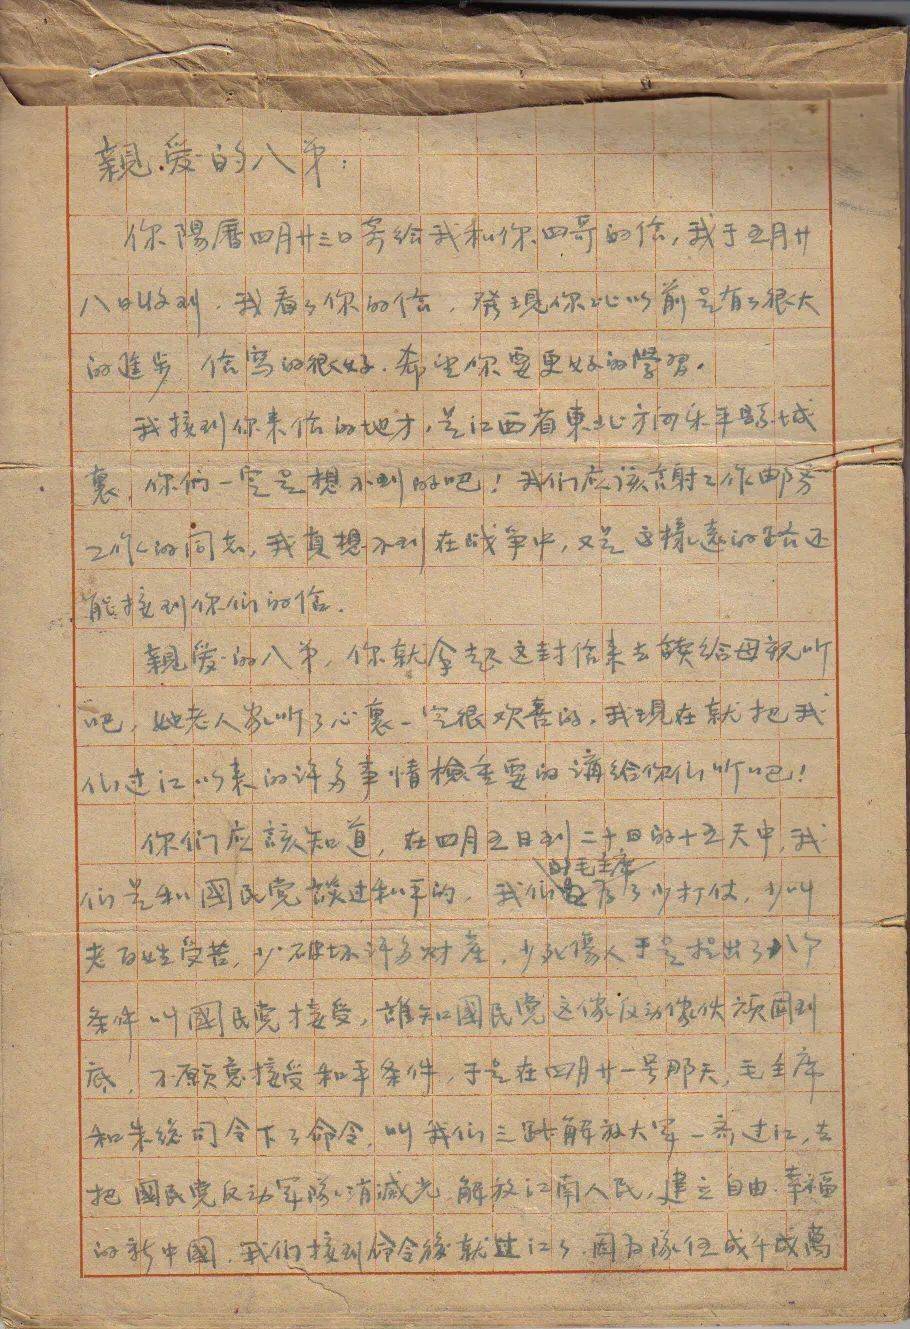 親爱的八弟：
你陽曆四月廿三日寄給我和你四哥的信，我于五月廿
八日收到．我看了你的信，發現你比以前是有了很大
的進步 信寫的很好．希望你要更好的學習。
我接到你来信的地方，是江西省東北方向乐平縣城
裏，你们一定是想不到的吧！我们应该謝謝工作邮务
工作的同志，我真想不到在战争中，又是这樣遠的路还
能接到你们的信．
親爱的八弟，你就拿起这封信来去讀給母親听
吧，她老人家听了心裏一定很欢喜的．我現在就把我
们过江以来的许多事情檢重要的講給你们听吧！
你们应該知道，在四月五日到二十日的十五天中，我
们是和國民党談过和平的，我们的毛主席为了少打仗，少叫
老百姓受苦，少破坏许多财產，少死傷人于是提出了八个
条件叫國民党接受，誰知國民党这傢反动傢伙頑固到
底，不願意接受和平条件，于是在四月廿一号那天，毛主席
和朱總司令下了命令，叫我们三路解放大军一齐过江，去
把國民党反动军隊消滅光．解放江南人民，建立自由．幸福
的新中國．我们接到命令後就过江了．因为隊伍成千成萬